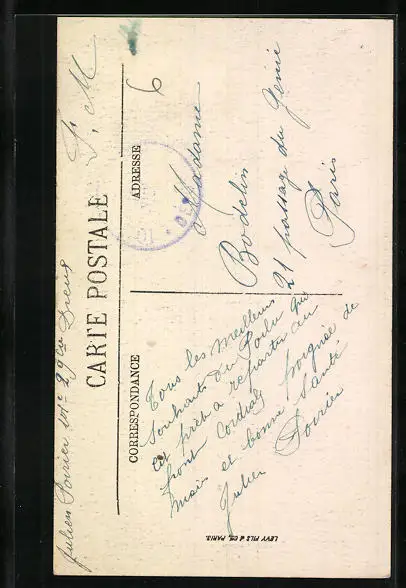 Julien Poirier 29e Dreux
F. M
CARTE POSTALE
CORRESPONDANCE
Tous les meilleurs
souhaits du Poilu qui
est prêt a repartir au
front Cordiale poignée de
mais et bonne santé
Julien Poirier
ADRESSE
6
Madame
Bodelin
21 passage du Genie
Paris
LEVY FILS & Cie, PARIS.